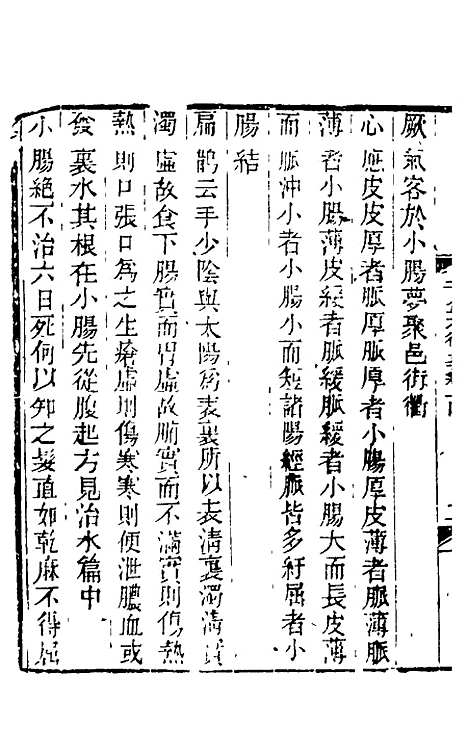 厥氣客於小腸夢聚邑街衢
心應皮皮厚者脈厚脈厚者小腸厚皮薄者脈薄脈
薄者小腸薄皮緩者脈緩脈緩者小腸大而長皮薄
而脈沖小者小腸小而短諸陽經脈皆多紆屈者小
腸結
扁鵲云手少陰與太陽爲表裏所以表淸裏濁淸實
濁虛故食下腸實而胃虛故腑實而不滿實則傷熱
熱則口張口爲之生瘡虛則傷寒寒則便泄膿血或
發裏水其根在小腸先從腹起方見治水篇中
小腸絕不治六日死何以知之髮直如乾麻不得屈